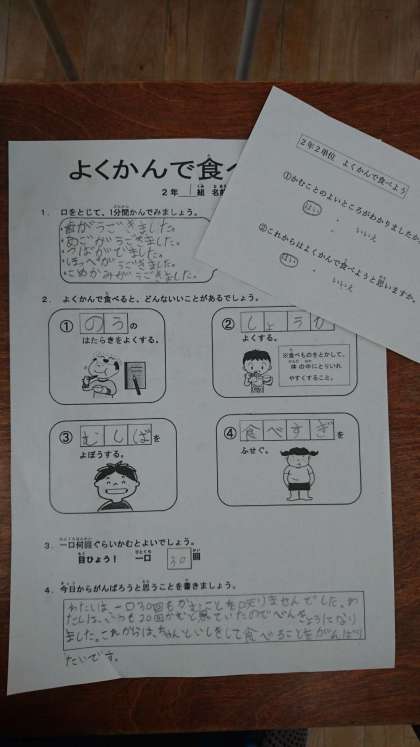 よくかんで食べ
2年 1組 名前
1. 口をとじて、1分間かんでみましょう。
・歯がうごきました。
・あごがうごきました。
・つばがでました。
・ほっぺがうごきました。
・こめかみがうごきました。
2. よくかんで食べると、どんないいことがあるでしょう。
① のうの
はたらきをよくする。
② しょうか
よくする。
※食べものをとかして、
体の中にとりいれ
やすくすること。
③ むしばを
よぼうする。
④ 食べすぎを
ふせぐ。
3. 一口何回ぐらいかむとよいでしょう。
目ひょう! 一口 30 回
4. 今日からがんばろうと思うことを書きましょう。
わたしは、一口30回もかむことを知りませんでした。わ
たしは、いつも20回かむと思っていたのでべんきょうになり
ました。これからは、ちゃんといしきをして食べることをがんばり
たいです。
2年2単位 よくかんで食べよう
①かむことのよいところがわかりましたか
はい ・ いいえ
②これからはよくかんで食べようと思いますか。
はい ・ いいえ